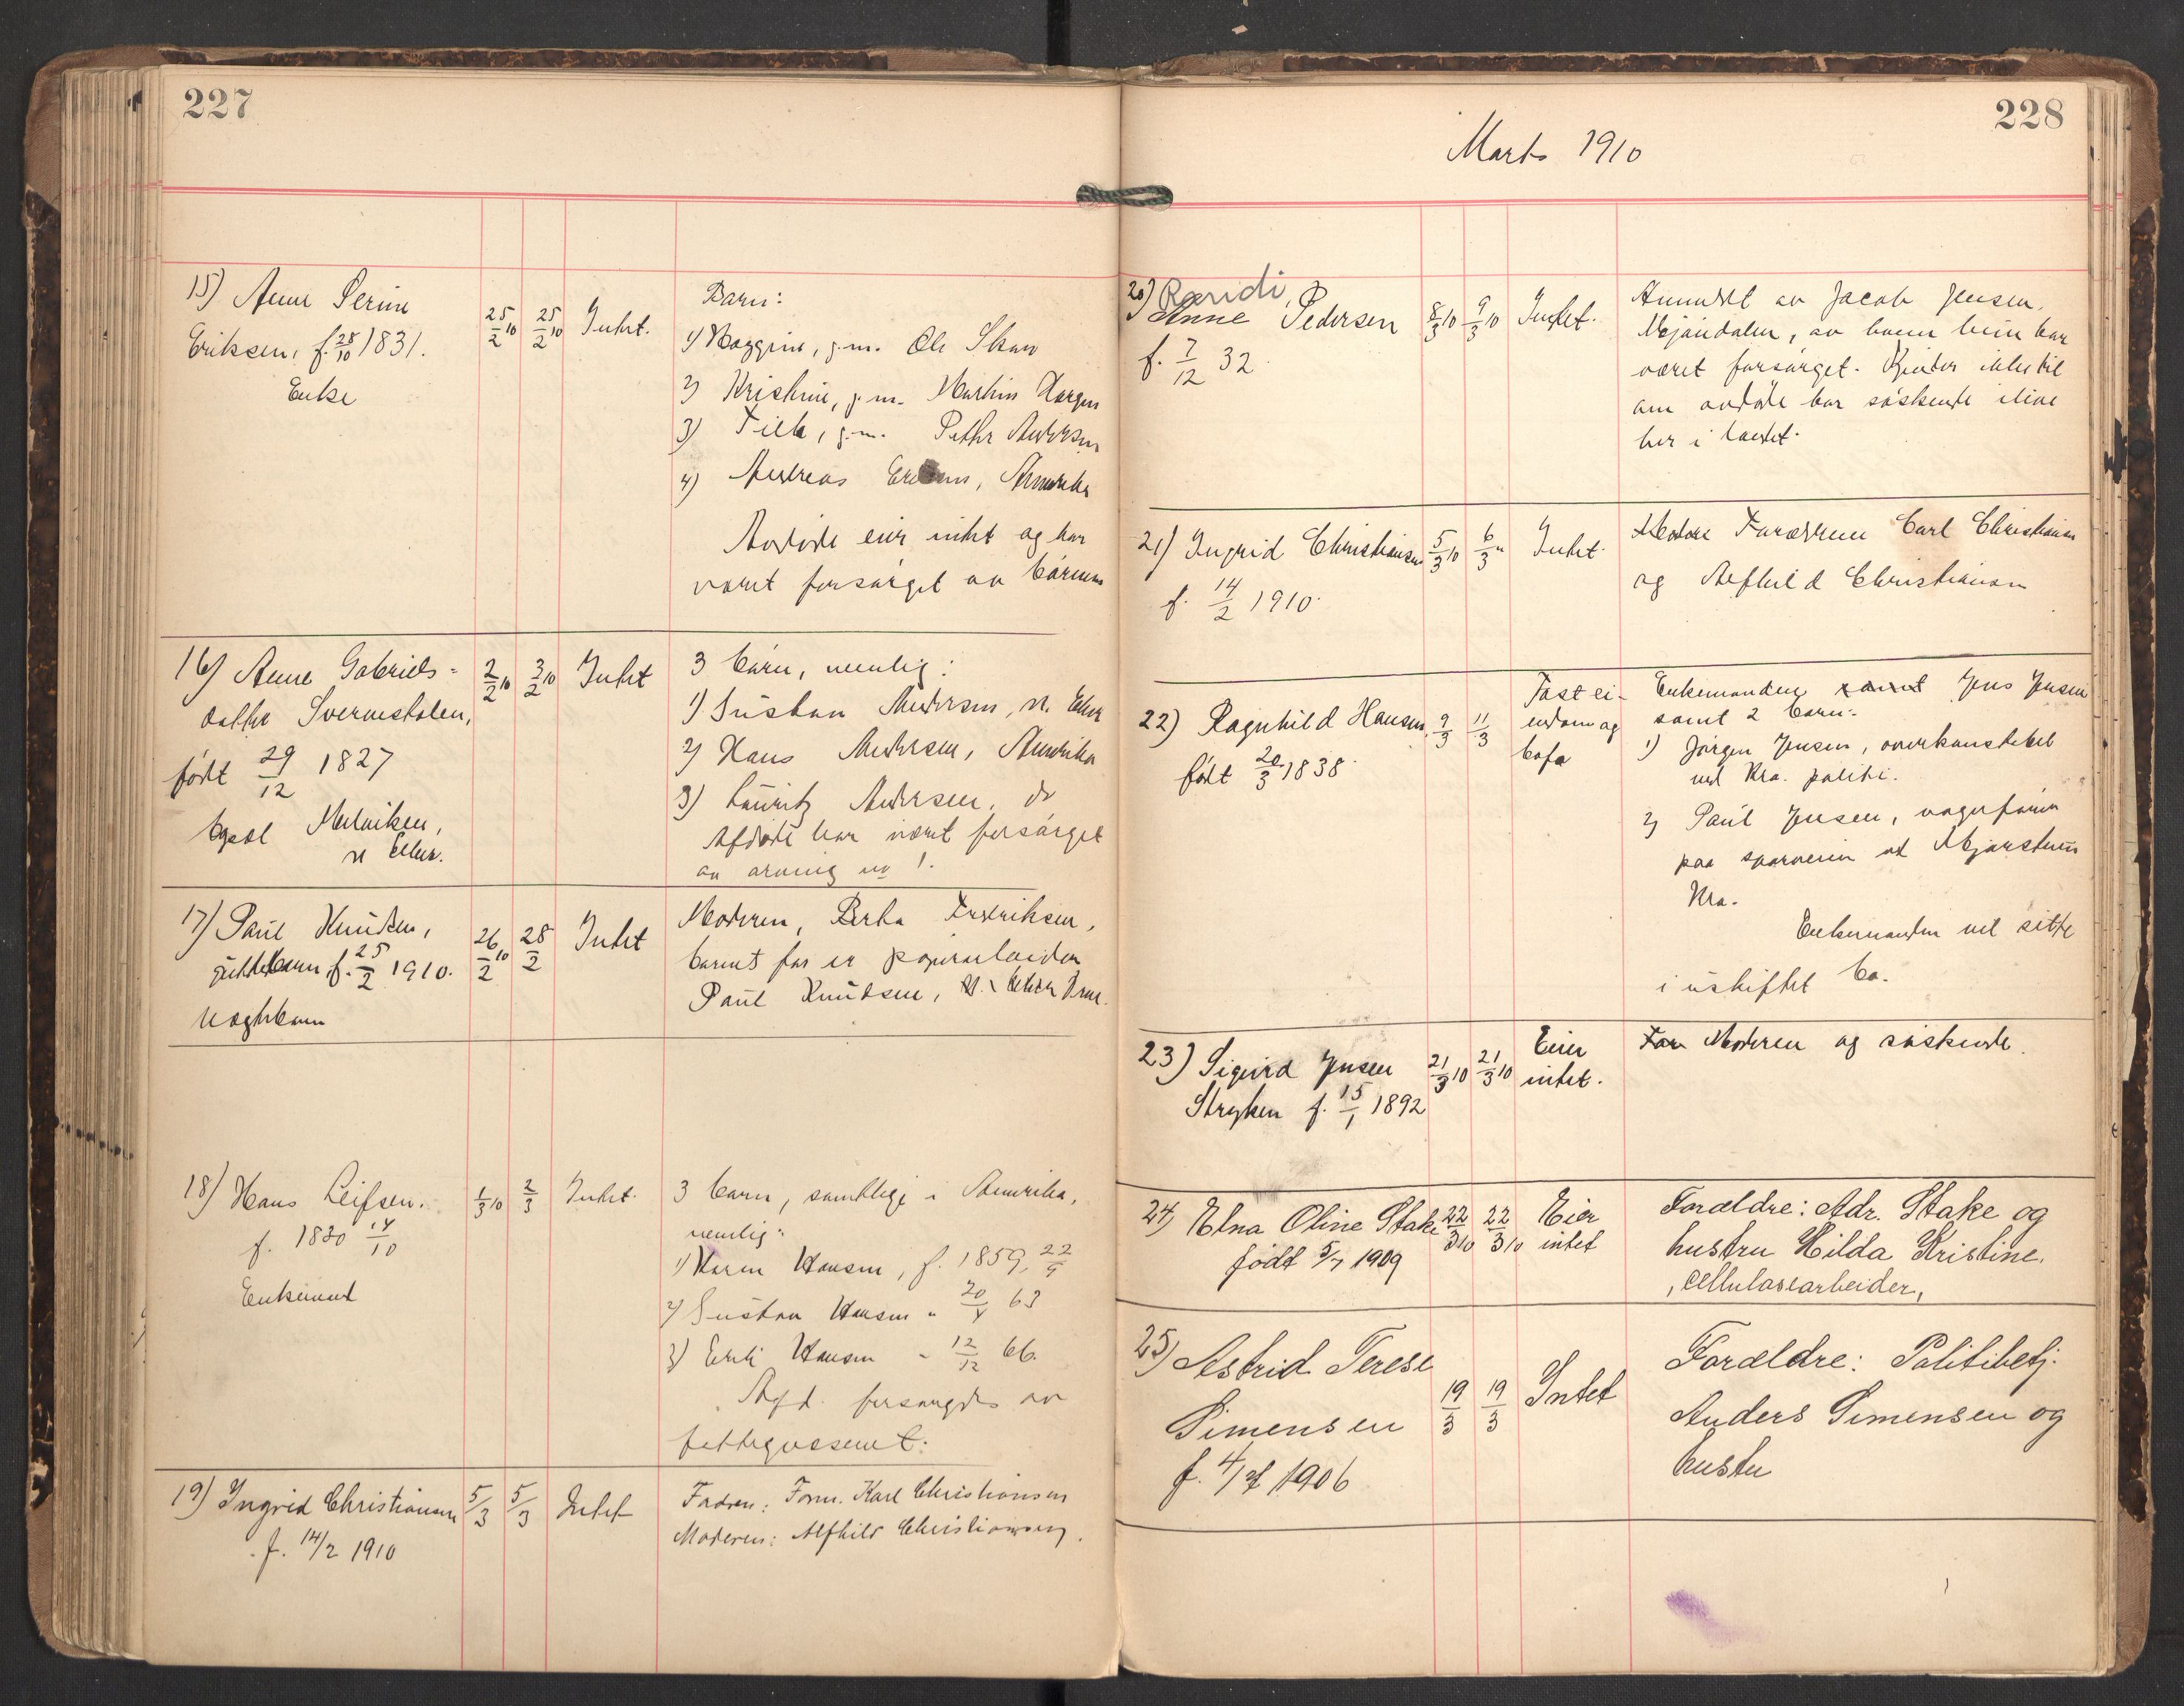 227
15) Anne Serine
Eriksen, f. 28/10 1831.
Enke
25/2 10
25/2 10
Intet.
Barn:
1) Maggine, g.m. Ole Skaw
2) Kristine, g.m. Martin Hargen
3) Tilla, g.m. Petter Andersen
4) Andreas Amerika
Avdøde eier intet og har
været forsørget av børnene
16) Anne Gabriels-
datter
født 29/12 1827
bopæl Melviken,
n. Eker.
2/2 10
3/2 10
Intet
3 børn, nemlig:
1) Gustav Andersen, n. Eker
2) Hans Andersen, Amerika
3) Lauritz Andersen, do
Afdøde har været forsørget
av arving no 1.
17) Paul Knudsen,
guttebarn, f. 25/2 1910.
uægtebarn
26/2 10
28/2
Intet
Moderen, Berta Fredriksen,
barnets far er papirarbeider
Paul Knudsen, n.
18) Hans Leifsen.
f. 1830 14/10
Enkemand
1/3 10
2/3
Intet.
3 barn, samtlige i Amerika,
nemlig:
1) Karen Hansen, f. 1859, 22/9
2) Gustav Hansen " 20/4 63
3) Erik Hansen - 12/12 66.
Afd. forsørgedes av
fattigvæsenet.
19) Ingrid Christiansen
f. 14/2 1910
5/3
5/3
Intet
Fadren: Form. Karl Christiansen
Moderen: Alfhild Christiansen.
228
Marts 1910
20) Randi
Anne Pedersen
f. 7/12 32
8/3 10
9/3 10
Intet.
Anmeldt av Jacob Jensen,
Mjøndalen, av hvem hun har
været forsørget. Kjender ikke til
om avdøde har søskende ilive
her i landet.
21) Ingrid Christiansen
f. 14/2 1910.
5/3 10
6/3 "
Intet.
Forældrene Carl Christiansen
og Alfhild Christiansen
22) Ragnhild Hansen,
født 20/3 1838
9/3
11/3
Fast ei-
endom og
bofæ
Enkemanden Jens Jensen
samt 2 barn.
1) Jørgen Jensen, overkonstabel
ved Kra. politi.
2) Paul Jensen, vognfører
paa sporveien ved Majorstuen
Kra.
Enkemanden vil sitte
i uskiftet bo.
23) Sigurd Jensen
Stryken f. 15/1 1892
21/3 10
21/3 10
Eier
intet.
Moderen og søskende.
24) Elna Oline Stake
født 5/7 1909
22/3 10
22/3 10
Eier
intet
Forældre: Adr. Stake og
hustru Hilda Kristine.
, cellulosearbeider,
25) Astrid Terese
Simensen
f. 4/7 1906
19/3
19/3
Intet
Forældre: Politibetj.
Anders Simensen og
hustru